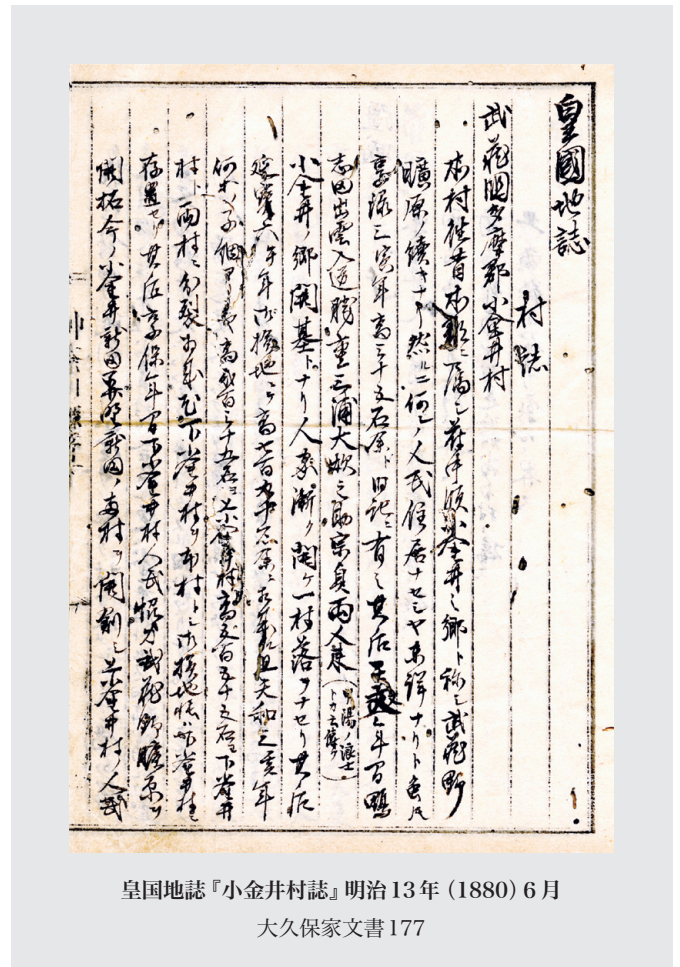 皇國地誌
村誌
武蔵國多摩郡小金井村
本村往昔本郡ニ属シ 領小金井ノ郷ト称シ武蔵野
曠原ノ續キナリ然ルニ何レノ人民住居ナセシヤ未詳ナリト虽モ
享禄三寅年高三十五石余ト旧記ニ有之其后天文之年間鴨
志田出雲入道勝重三浦大 之助宗員両人来(甲陽ノ浪士トカ云傳フ)
小金井ノ郷開基トナリ人家漸ク開ケ一村落ヲナセリ其后
延寳六午年御検地ニ 高七百九十石余ニ 且天和 亥年
何 ノ子細アリ哉高貳百三十五石ヲ上小金井村高五百五十五石ヲ下小金井
村ト両村ニ分裂相成 下小金井村ヲ本村トシ御検地帳ハ下小金井村ニ
存置セリ其后享保年間下小金井村人民協力武蔵野曠原ヲ
開拓今ノ小金井新田并関野新田ノ両村ヲ開創シ上小金井村ノ人民
皇国地誌『小金井村誌』明治13年（1880）6月
大久保家文書177